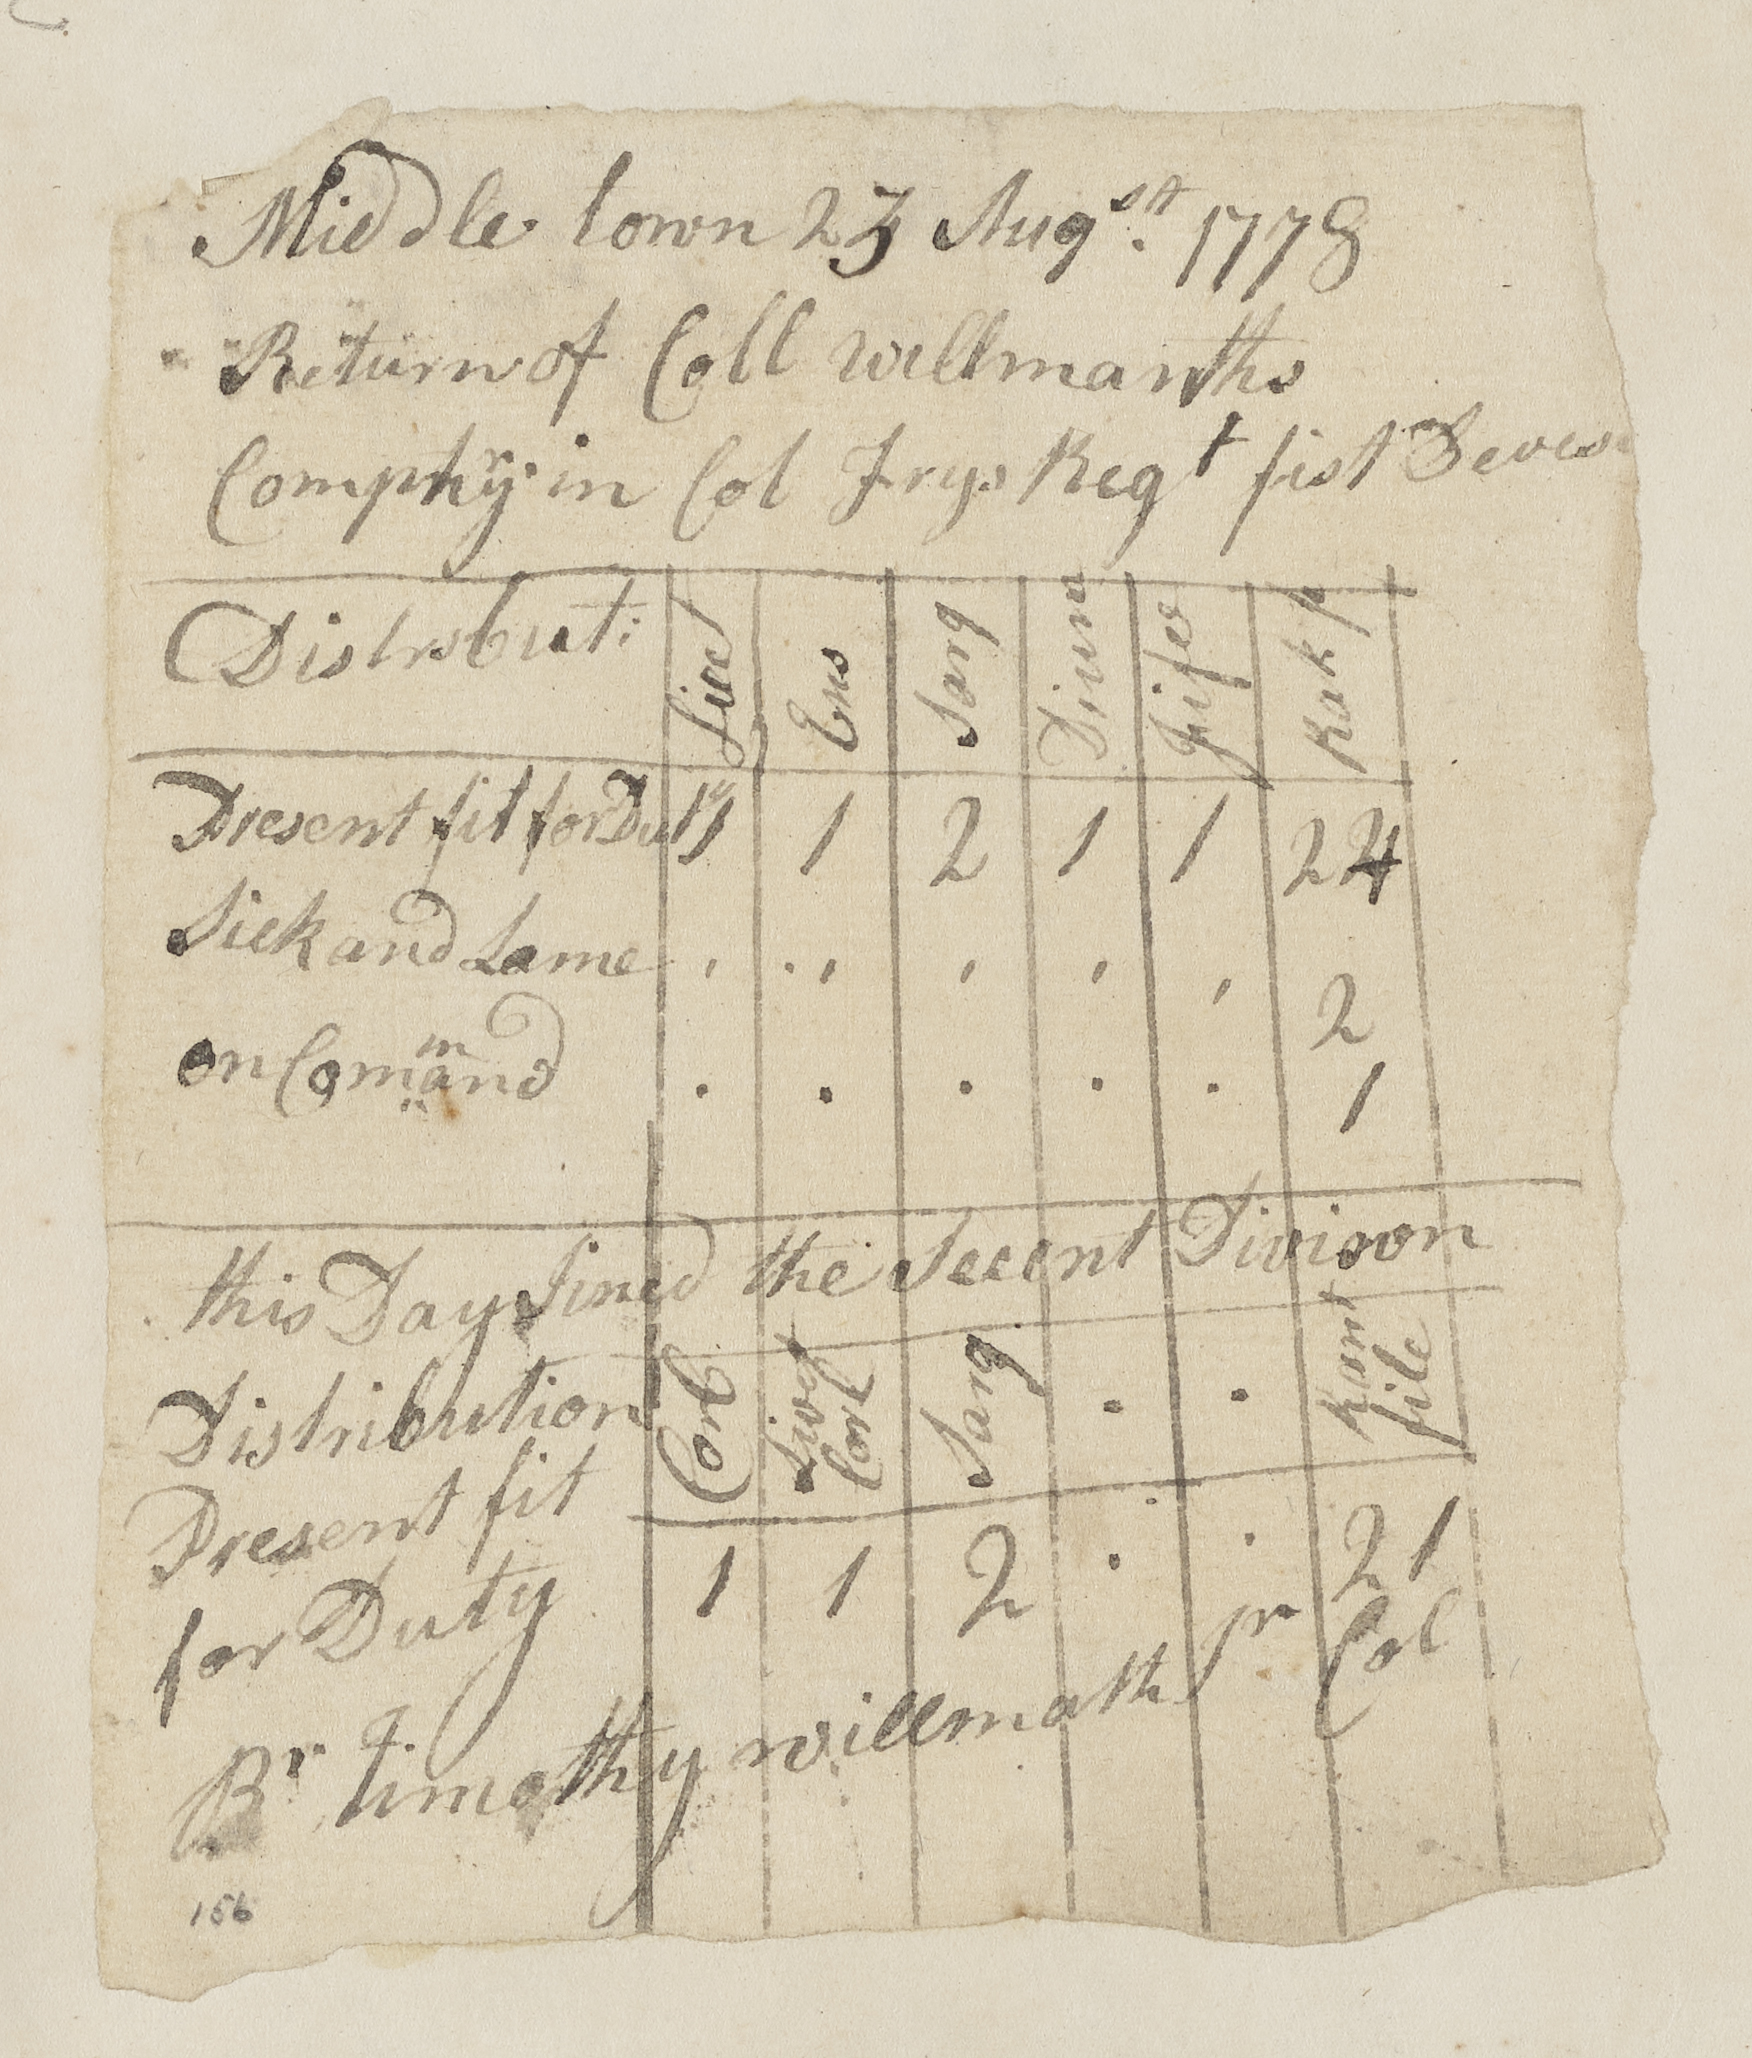 Middle town 23 Augst. 1778
Return of Coll Willmarths
Compny in Col Frys Regt fist
Distrbut: Liet Ens Sarg Drum Fifer
Present fit for Duty 1 1 2 1 1 24
Sick and Lame , . , , , , 2
on Command . . . . . 1
this Day Jined the Secent Divison
Distribution Corl Sarg . . Rant file
Present fit
for Duty 1 1 2 . . 21
Br Timothy Willmath Jr Col
156